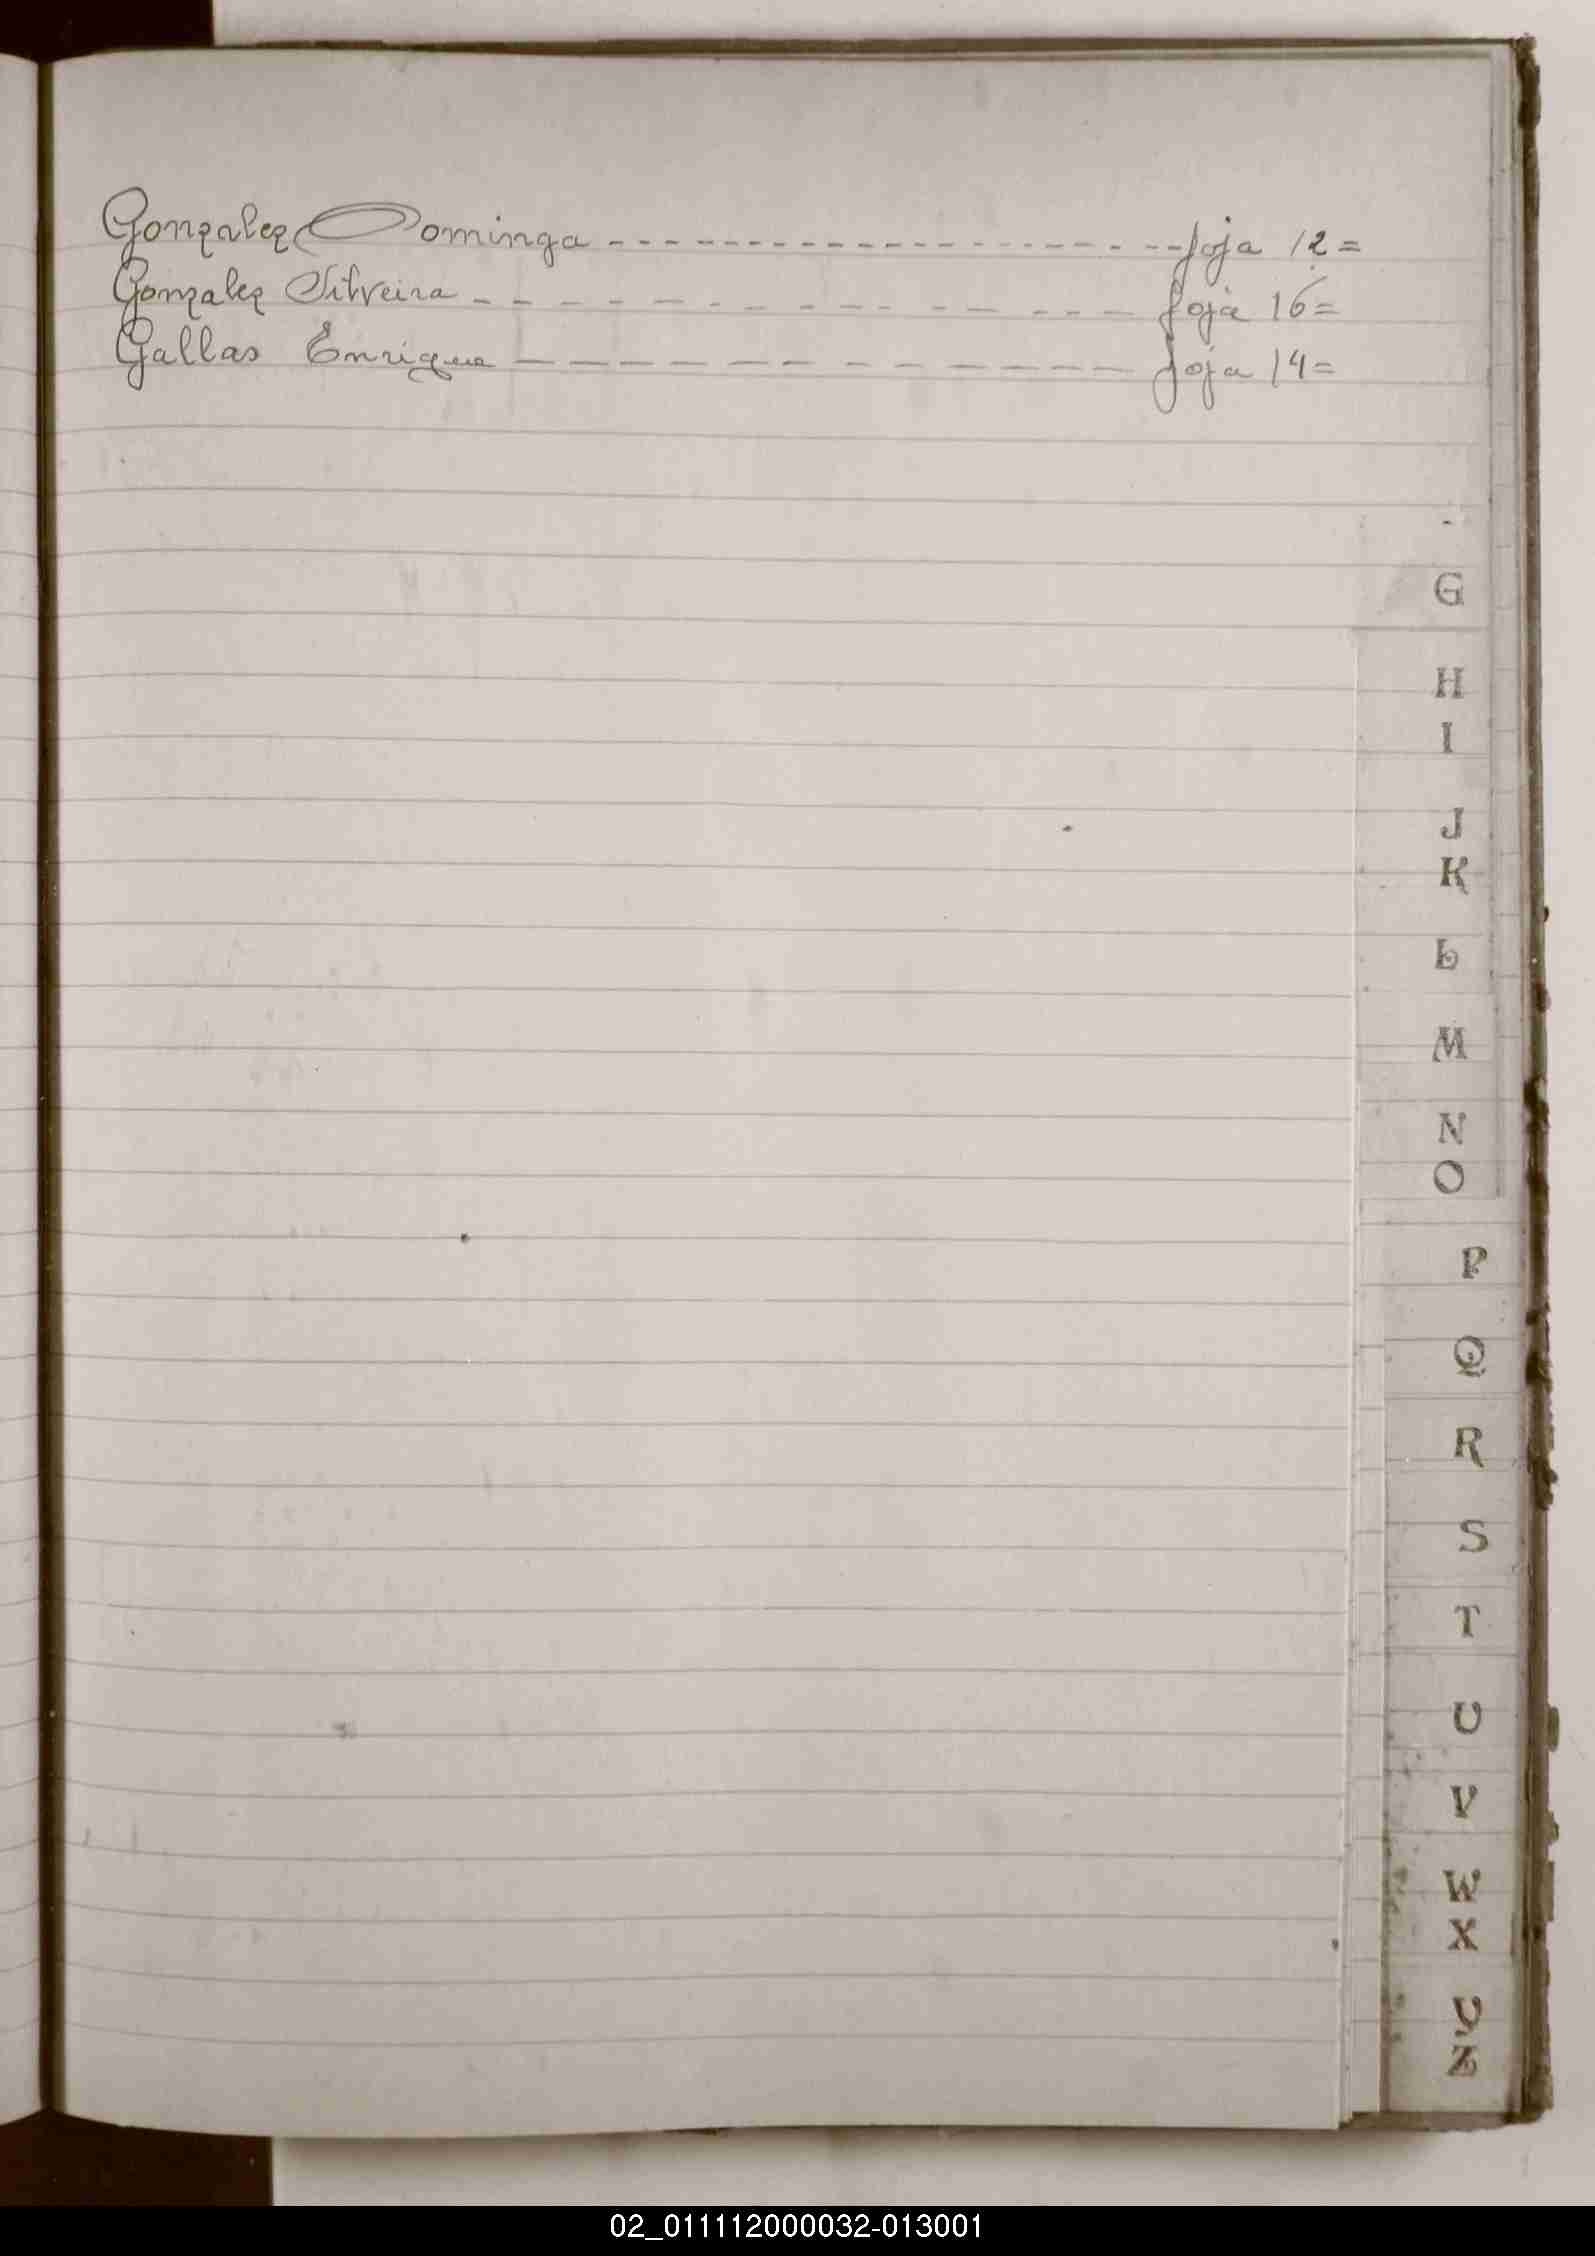 Gonzalez Dominga -------------------- foja 12=
Gonzalez Silveira -------------- foja 16=
Gallas Enrique -------------- foja 14=
G
H
I
J
K
L
M
N
O
P
Q
R
S
T
U
V
W
X
Y
Z
02_011112000032-013001